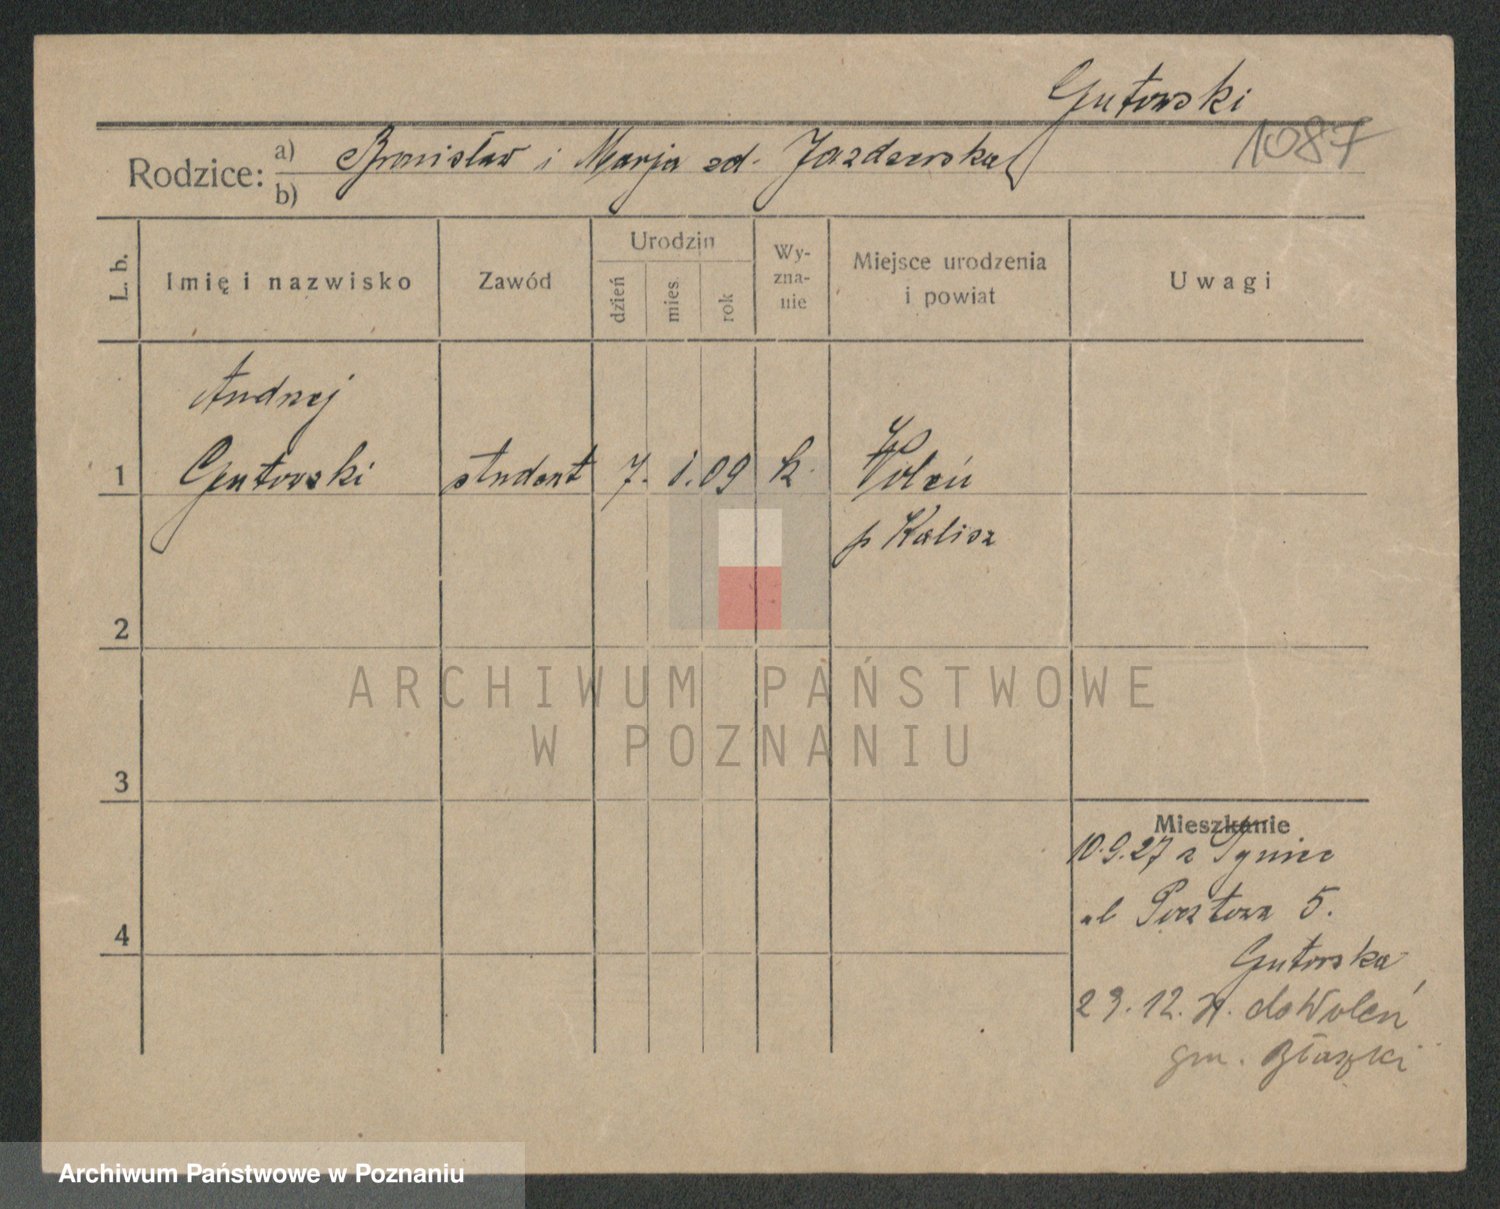 Gutowski
1087
Rodzice: a) Bronisław i Marja zd. Jazdzewska
b)
L. b.
Imię i nazwisko
Zawód
Urodzin
dzień
mies.
rok
Wy-
zna-
nie
Miejsce urodzenia
i powiat
Uwagi
Andrzej
1 Gutowski student 7. 1. 09 k. Woleń
p Kalisz
2
3
4
Mieszkanie
10.9.27 z Tyniec
ul Pocztowa 5.
Gutowska
29.12. do Woleń
gm. Błaszki
ARCHIWUM PAŃSTWOWE
W POZNANIU
Archiwum Państwowe w Poznaniu